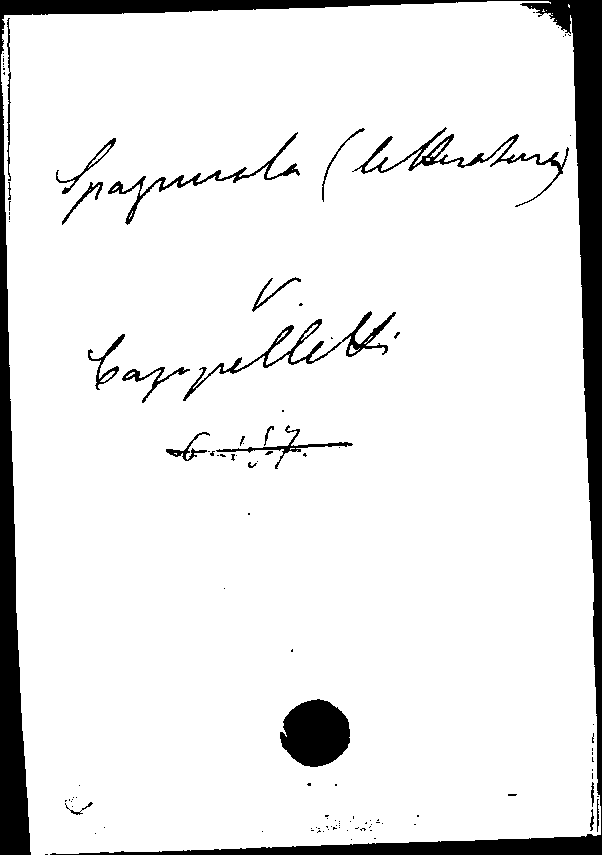 Spagnuola (letteratura)
V.
Cappelletti